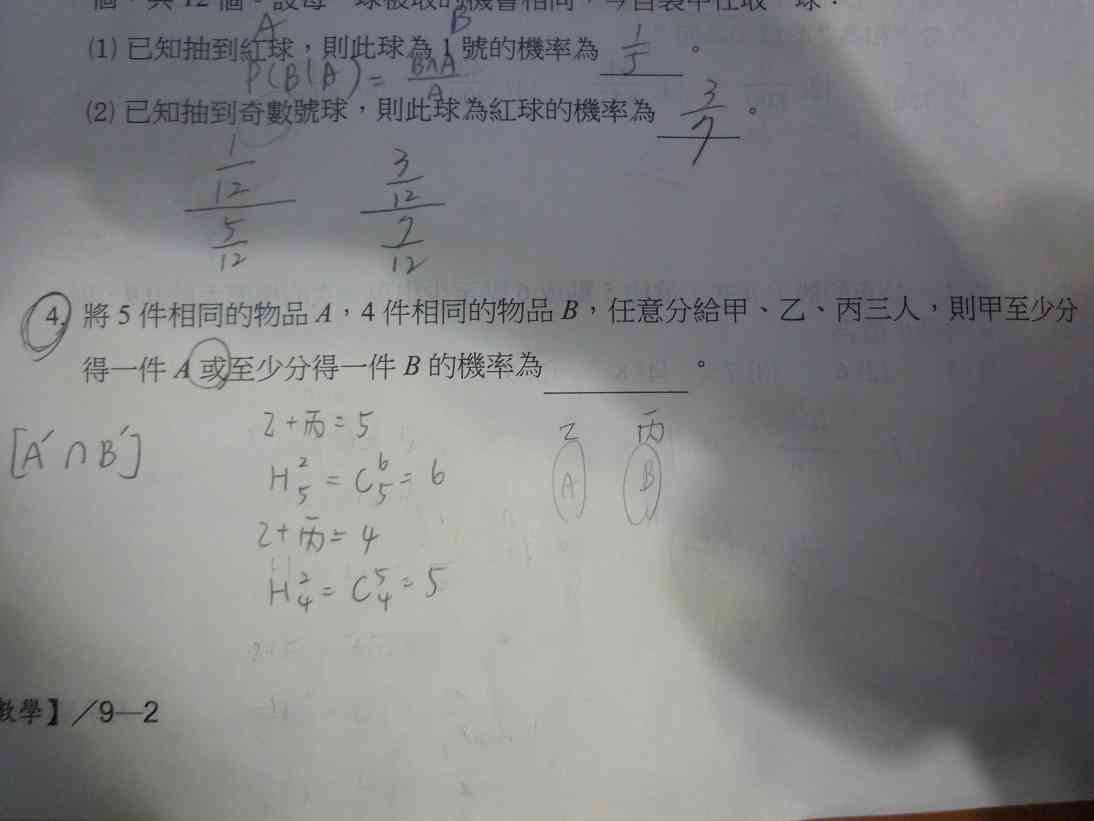 個,共 12 個。設每一球被取的機會相同,今自袋中任取一球:
A B
(1) 已知抽到紅球,則此球為 1 號的機率為 1/5 。
P(B|A) = B∩A/A
(2) 已知抽到奇數號球,則此球為紅球的機率為 3/7 。
1/12 3/12
5/12 7/12
4. 將 5 件相同的物品 A,4 件相同的物品 B,任意分給甲、乙、丙三人,則甲至少分
得一件 A 或至少分得一件 B 的機率為 。
乙+丙=5 乙 丙
[A′∩B′]
H²₅ = C⁶₅ = 6 A B
乙+丙=4
H²₄ = C⁵₄ = 5
數學】/9—2